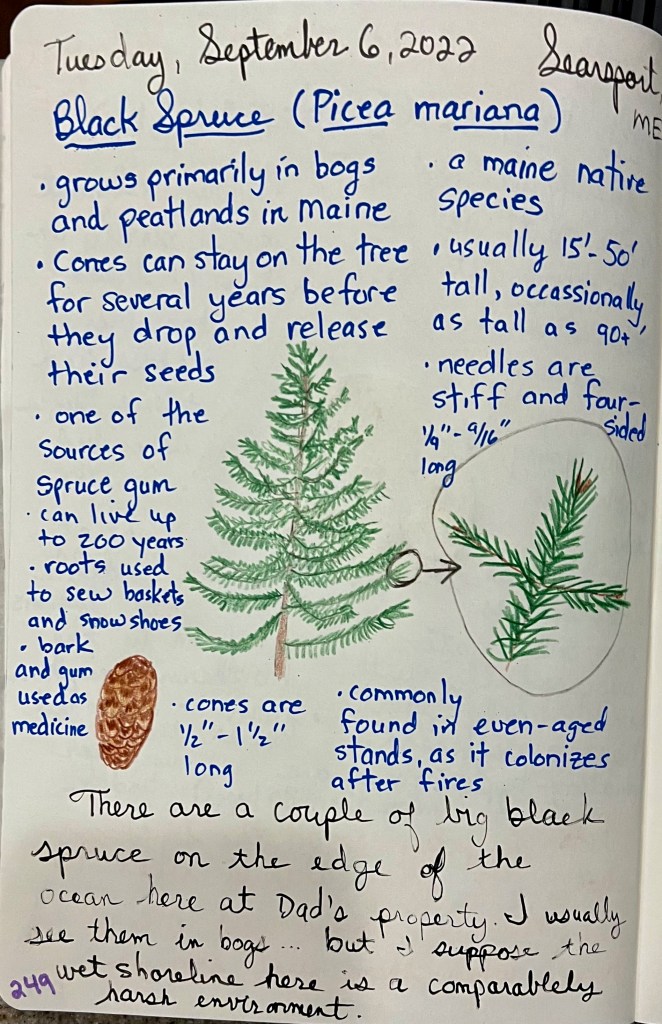 Tuesday, September 6, 2022
Searsport,
ME
Black Spruce (Picea mariana)
• grows primarily in bogs
and peatlands in Maine
• Cones can stay on the tree
for several years before
they drop and release
their seeds
• one of the
sources of
spruce gum
• can live up
to 200 years
• roots used
to sew baskets
and snowshoes
• bark
and gum
used as
medicine
• a maine native
species
• usually 15'-50'
tall, occassionally
as tall as 90+'
• needles are
stiff and four-
sided
1/4"-9/16"
long
• cones are
1/2"-1 1/2"
long
• commonly
found in even-aged
stands, as it colonizes
after fires
There are a couple of big black
spruce on the edge of the
ocean here at Dad's property. I usually
see them in bogs... but I suppose the
wet shoreline here is a comparablely
harsh environment.
249